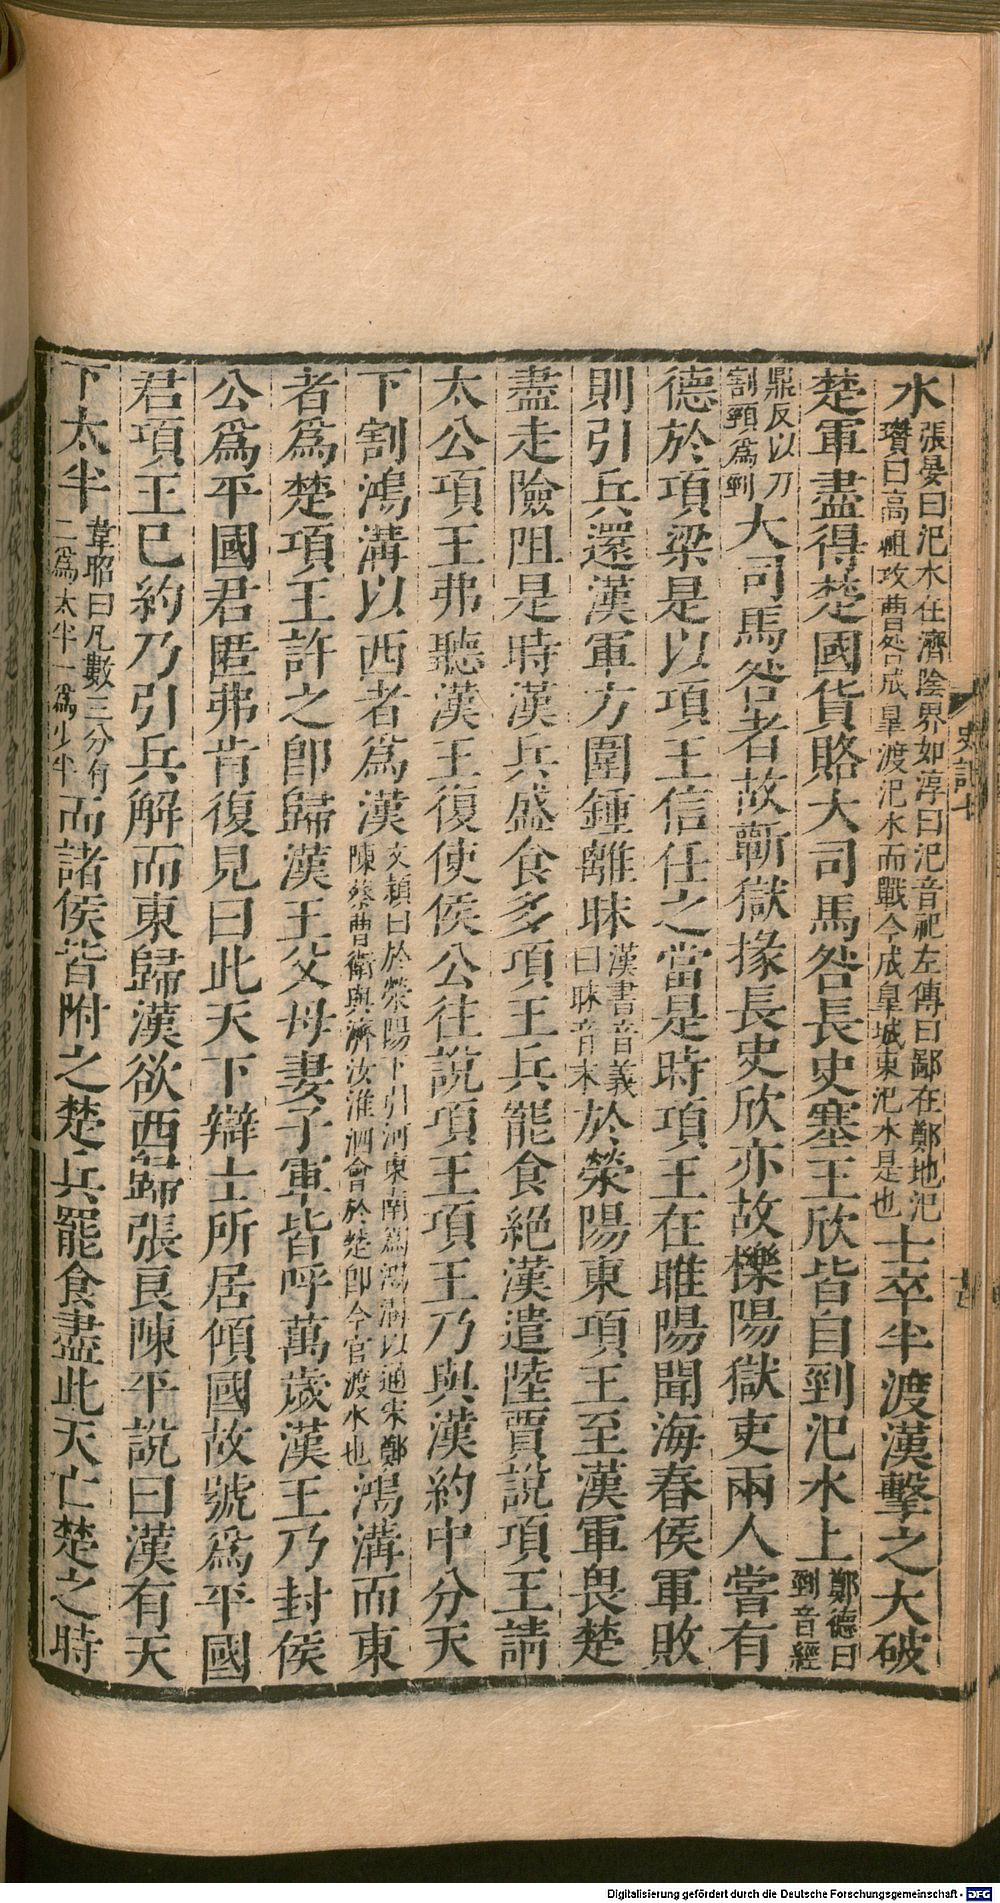 水張晏曰汜水在濟陰界如淳曰汜音祀左傳曰鄙在鄭地汜瓚曰高祖攻曹咎成皐渡汜水而戰今成皐城東汜水是也士卒半渡漢擊之大破
楚軍盡得楚國貨賂大司馬咎長史塞王欣皆自剄汜水上鄭德曰剄音經
鼎反以刀割頸為剄大司馬咎者故蘄獄掾長史欣亦故櫟陽獄吏兩人嘗有
德於項梁是以項王信任之當是時項王在睢陽聞海春侯軍敗
則引兵還漢軍方圍鍾離昧漢書音義曰昧音末於滎陽東項王至漢軍畏楚
盡走險阻是時漢兵盛食多項王兵罷食絕漢遣陸賈說項王請
太公項王弗聽漢王復使侯公往說項王項王乃與漢約中分天
下割鴻溝以西者爲漢文穎曰於滎陽下引河東南爲鴻溝以通宋鄭陳蔡曹衛與濟汝淮泗會於楚卽今官渡水也鴻溝而東
者爲楚項王許之卽歸漢王父母妻子軍皆呼萬歲漢王乃封侯
公爲平國君匿弗肯復見曰此天下辯士所居傾國故號爲平國
君項王已約乃引兵解而東歸漢欲西歸張良陳平說曰漢有天
下太半韋昭曰凡數三分有二爲太半一爲少半而諸侯皆附之楚兵罷食盡此天亡楚之時
史記七
Digitalisierung gefördert durch die Deutsche Forschungsgemeinschaft - DFG